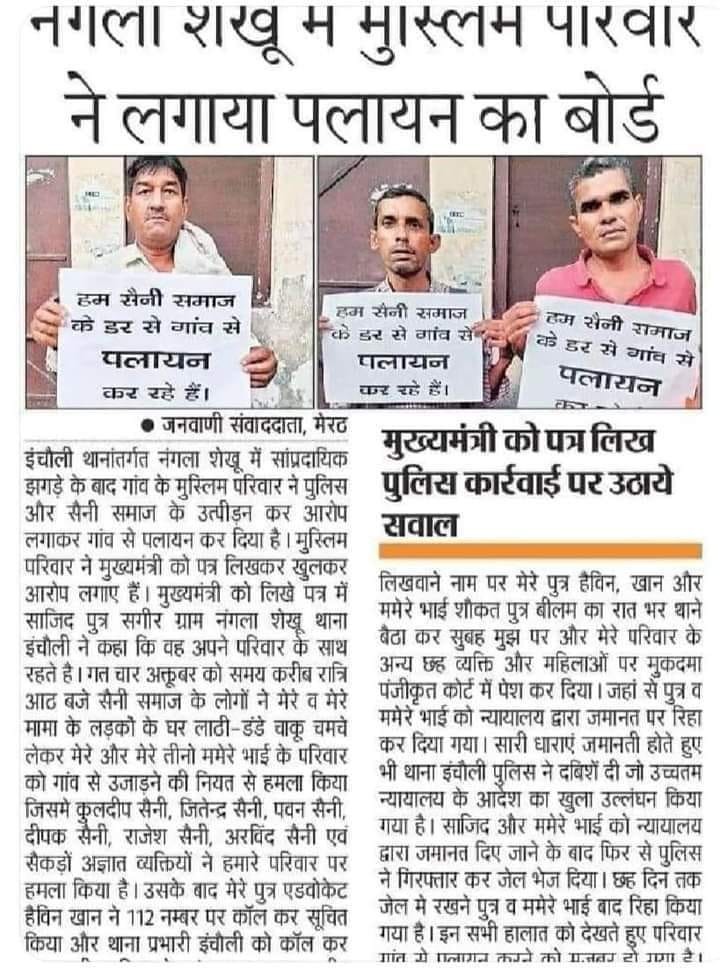 नंगला शेखू में मुस्लिम परिवार
ने लगाया पलायन का बोर्ड
हम सैनी समाज
के डर से गांव से
पलायन
कर रहे हैं।
हम सैनी समाज
के डर से गांव से
पलायन
कर रहे हैं।
हम सैनी समाज
के डर से गांव से
पलायन
● जनवाणी संवाददाता, मेरठ
इंचौली थानांतर्गत नंगला शेखू में सांप्रदायिक
झगड़े के बाद गांव के मुस्लिम परिवार ने पुलिस
और सैनी समाज के उत्पीड़न कर आरोप
लगाकर गांव से पलायन कर दिया है। मुस्लिम
परिवार ने मुख्यमंत्री को पत्र लिखकर खुलकर
आरोप लगाए हैं। मुख्यमंत्री को लिखे पत्र में
साजिद पुत्र सगीर ग्राम नंगला शेखू थाना
इंचौली ने कहा कि वह अपने परिवार के साथ
रहते है। गत चार अक्तूबर को समय करीब रात्रि
आठ बजे सैनी समाज के लोगों ने मेरे व मेरे
मामा के लड़को के घर लाठी-डंडे चाकू चमचे
लेकर मेरे और मेरे तीनो ममेरे भाई के परिवार
को गांव से उजाड़ने की नियत से हमला किया
जिसमे कुलदीप सैनी, जितेन्द्र सैनी, पवन सैनी,
दीपक सैनी, राजेश सैनी, अरविंद सैनी एवं
सैकड़ों अज्ञात व्यक्तियों ने हमारे परिवार पर
हमला किया है। उसके बाद मेरे पुत्र एडवोकेट
हैविन खान ने 112 नम्बर पर कॉल कर सूचित
किया और थाना प्रभारी इंचौली को कॉल कर
मुख्यमंत्री को पत्र लिख
पुलिस कार्रवाई पर उठाये
सवाल
लिखवाने नाम पर मेरे पुत्र हैविन, खान और
ममेरे भाई शौकत पुत्र बीलम का रात भर थाने
बैठा कर सुबह मुझ पर और मेरे परिवार के
अन्य छह व्यक्ति और महिलाओं पर मुकदमा
पंजीकृत कोर्ट में पेश कर दिया। जहां से पुत्र व
ममेरे भाई को न्यायालय द्वारा जमानत पर रिहा
कर दिया गया। सारी धाराएं जमानती होते हुए
भी थाना इंचौली पुलिस ने दबिशें दी जो उच्चतम
न्यायालय के आदेश का खुला उल्लंघन किया
गया है। साजिद और ममेरे भाई को न्यायालय
द्वारा जमानत दिए जाने के बाद फिर से पुलिस
ने गिरफ्तार कर जेल भेज दिया। छह दिन तक
जेल मे रखने पुत्र व ममेरे भाई बाद रिहा किया
गया है। इन सभी हालात को देखते हुए परिवार
गांव से पलायन करने को मजबूर हो गया है।